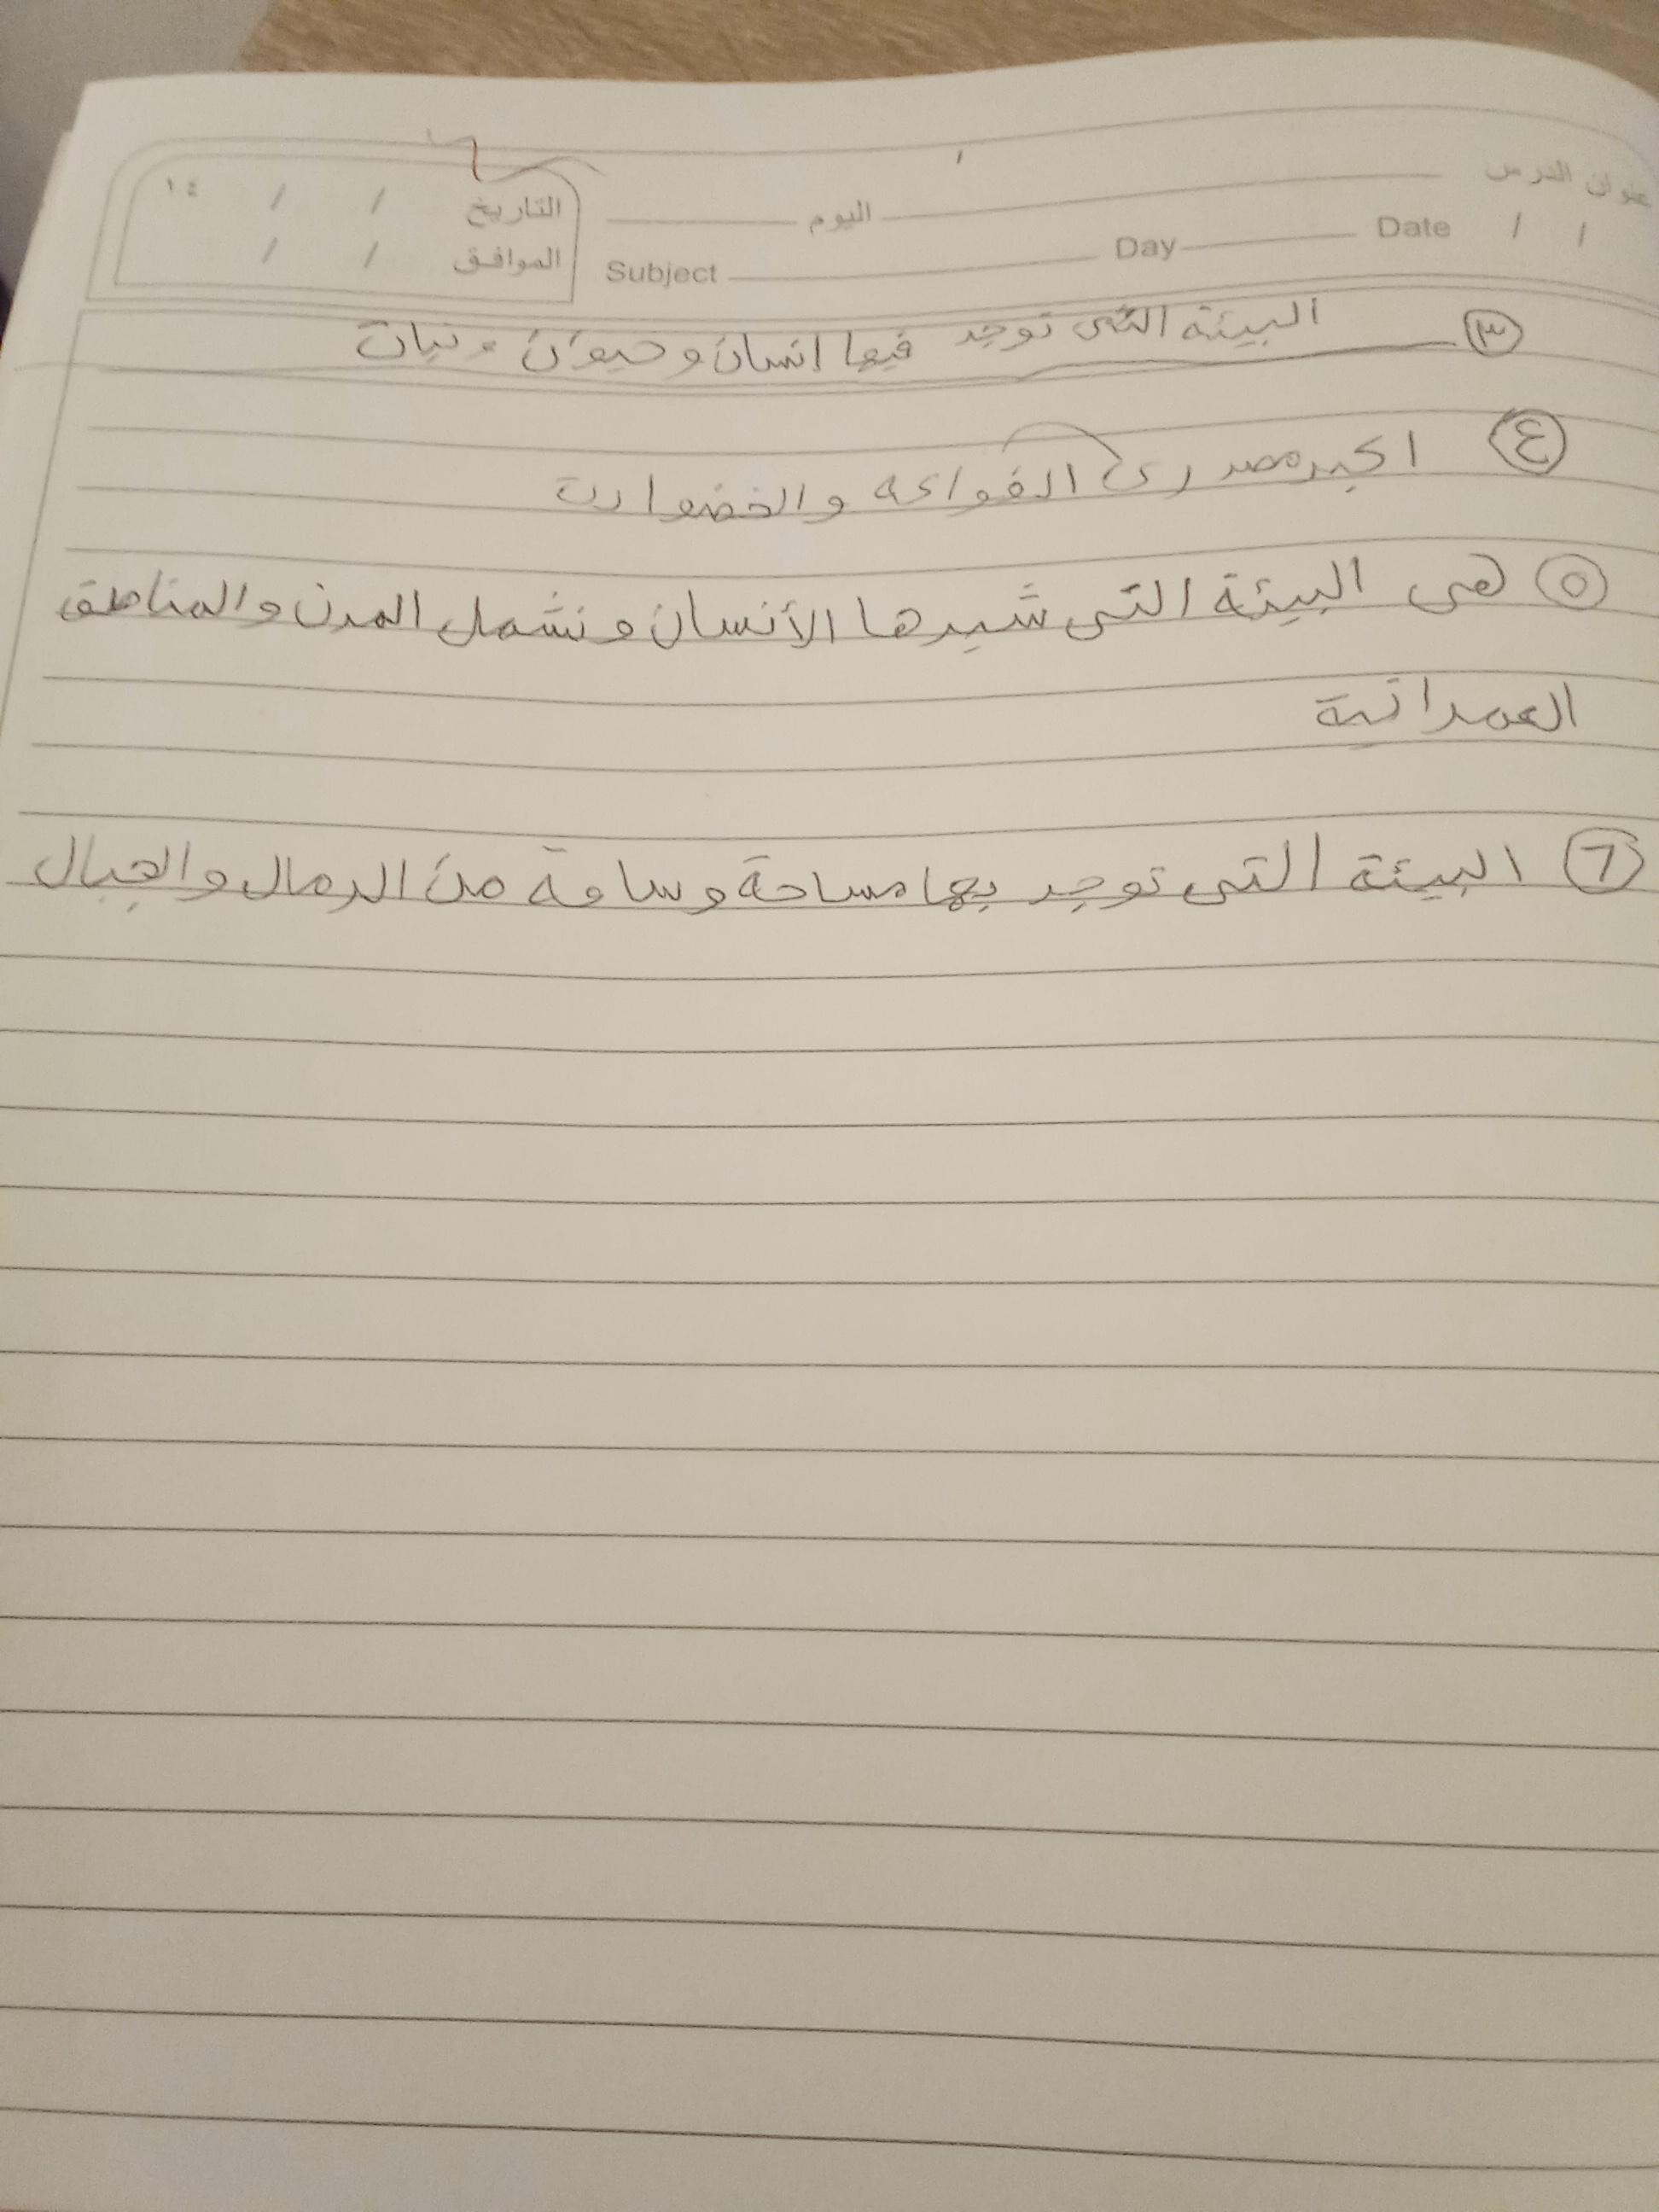 عنوان الدرس اليوم التاريخ / / ١٤
Date / / Day Subject الموافق / /
٣ البيئة التى توجد فيها انسان وحيوان ونبات
٤ اكبر مصدرى الفواكه والخضوارت
٥ هى البيئة التى شيدها الأنسان وتشمل المدن والمناطق
العمرانية
٦ البيئة التى توجد بها مساحة وساعة من الرمال والجبال